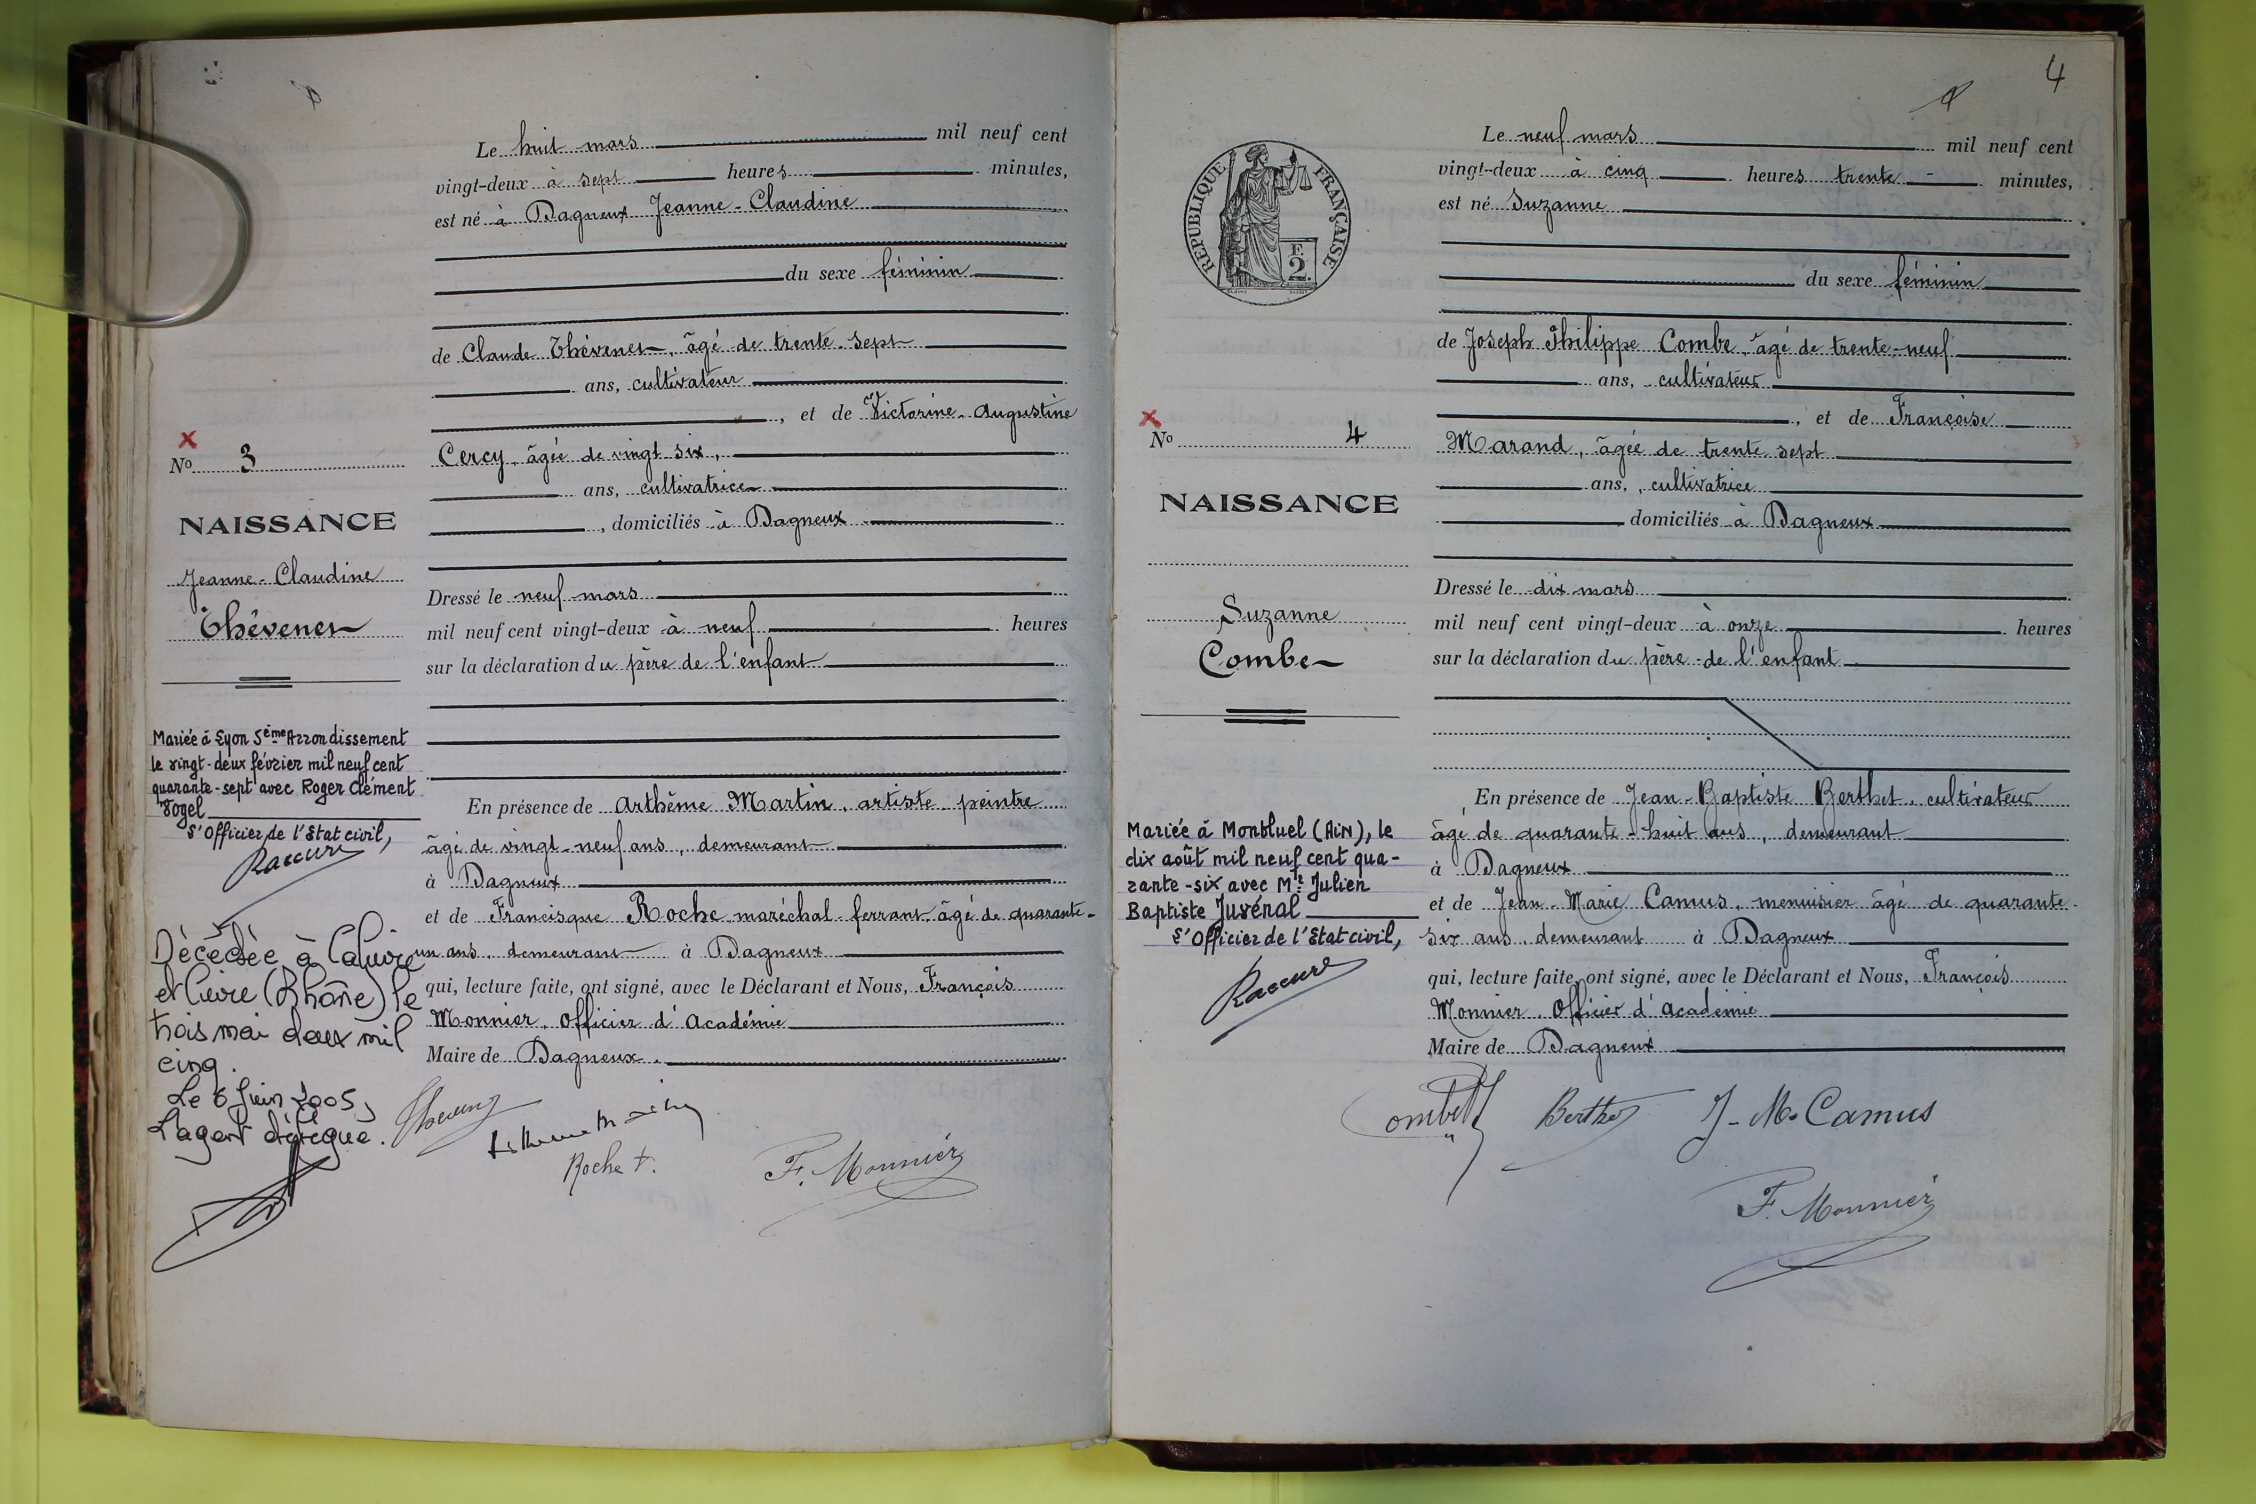 Le huit mars mil neuf cent
vingt-deux à sept heures minutes,
est né à Dagneux Jeanne-Claudine
du sexe féminin
de Claude Thévenet, âgé de trente-sept
ans, cultivateur
, et de Victorine-Augustine
Cercy, âgée de vingt-six,
ans, cultivatrice
, domiciliés à Dagneux
Dressé le neuf mars
mil neuf cent vingt-deux à neuf heures
sur la déclaration du père de l'enfant
En présence de Arthème Martin, artiste peintre
âgé de vingt-neuf ans, demeurant
à Dagneux
et de Francisque Roche maréchal-ferrant âgé de quarante-
un ans, demeurant à Dagneux
qui, lecture faite, ont signé, avec le Déclarant et Nous, François
Monnier, Officier d'Académie
Maire de Dagneux.
Roche F.
F. Monnier
No 3
NAISSANCE
Jeanne-Claudine
Thévenet
Mariée à Lyon 5ème Arrondissement
le vingt-deux février mil neuf cent
quarante-sept avec Roger Clément
Vogel
L'Officier de l'Etat civil,
Décédée à Caluire
et Cuire (Rhône) le
trois mai deux mil
cinq.
Le 6 Juin 2005,
L'agent délégué.
4
RÉPUBLIQUE FRANÇAISE
2
Le neuf mars mil neuf cent
vingt-deux à cinq heures trente minutes,
est né Suzanne
du sexe féminin
de Joseph Philippe Combe, âgé de trente-neuf
ans, cultivateur
, et de Françoise
Marand, âgée de trente sept
ans, cultivatrice
domiciliés à Dagneux
Dressé le dix mars
mil neuf cent vingt-deux à onze heures
sur la déclaration du père de l'enfant
En présence de Jean-Baptiste Berthet, cultivateur
âgé de quarante-huit ans, demeurant
à Dagneux
et de Jean-Marie Camus, menuisier âgé de quarante-
six ans, demeurant à Dagneux
qui, lecture faite, ont signé, avec le Déclarant et Nous, François
Monnier, Officier d'Académie
Maire de Dagneux
Berthet J-M. Camus
F. Monnier
No 4
NAISSANCE
Suzanne
Combe
Mariée à Montluel (Ain), le
dix août mil neuf cent qua-
rante-six avec Mr. Julien
Baptiste Juvénal
L'Officier de l'Etat civil,